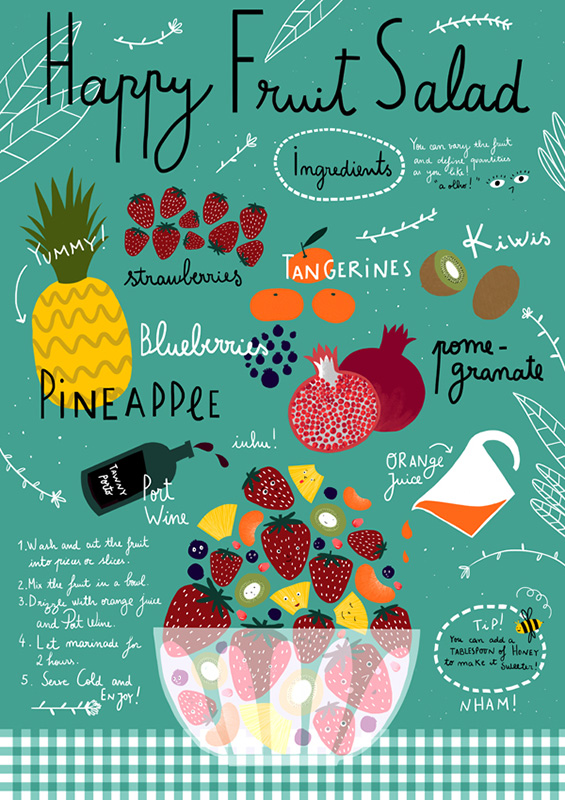 Happy Fruit Salad
Ingredients
You can vary the fruit
and define quantities
as you like!
"a olho!"
YUMMY!
strawberries
TANGERINES
Kiwis
Blueberries
pome-
granate
PINEAPPLE
iuhu!
TAWNY
Porto
Port
Wine
ORANGE
juice
1. Wash and cut the fruit
into pieces or slices.
2. Mix the fruit in a bowl.
3. Drizzle with orange juice
and Port Wine.
4. Let marinade for
2 hours.
5. Serve Cold and
ENJOY!
TiP!
You can add a
TABLESPOON of HONEY
to make it sweeter!
NHAM!